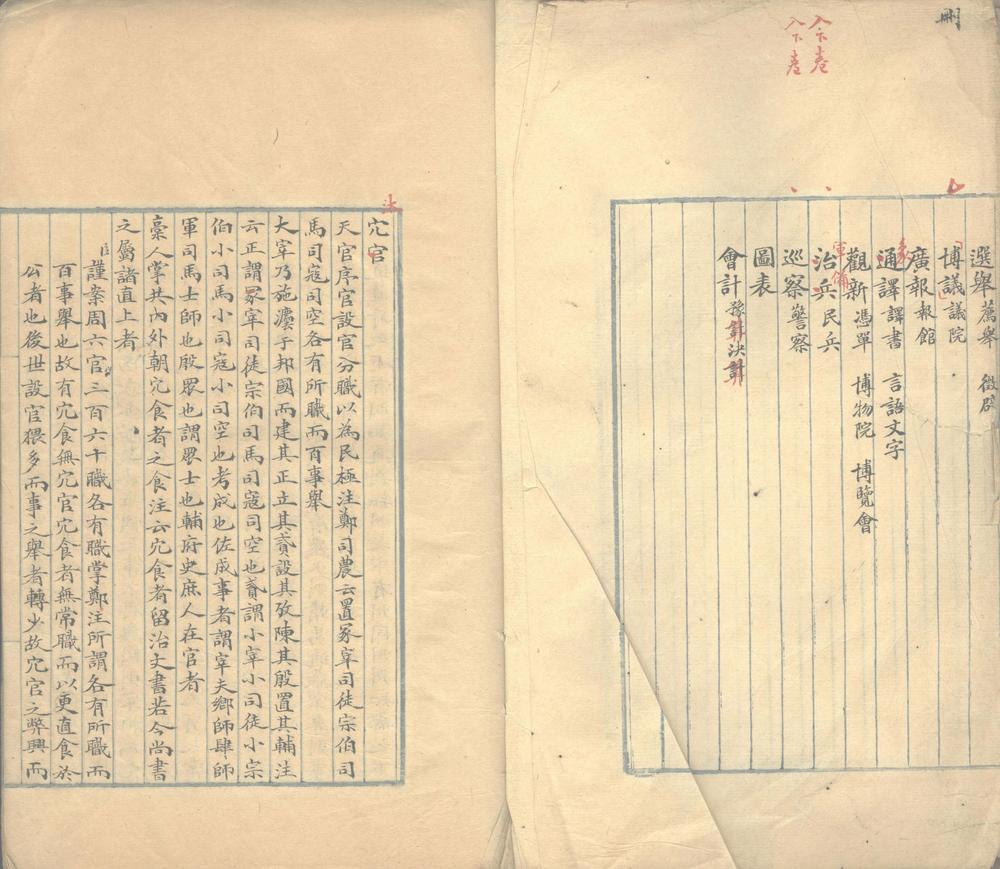 刪
入下卷
入下卷
選舉 薦舉 徵辟
博議 議院
廣報 報館
通譯 譯書 言語文字
觀新 憑單 博物院 博覽會
軍備
治兵 民兵
巡察 警察
圖表
會計 豫算決算
冗官
天官序官設官分職以為民極注鄭司農云置冢宰司徒宗伯司
馬司寇司空各有所職而百事舉
大宰乃施灋于邦國而建其正立其貳設其攷陳其殷置其輔注
云正謂冢宰司徒宗伯司馬司寇司空也貳謂小宰小司徒小宗
伯小司馬小司寇小司空也考成也佐成事者謂宰夫鄉師肆師
軍司馬士師也殷眾也謂眾士也輔府史庶人在官者
稾人掌共內外朝冗食者之食注云冗食者留治文書若今尚書
之屬諸直上者
謹案周六官三百六十職各有職掌鄭注所謂各有所職而
百事舉也故有冗食無冗官冗食者無常職而以更直食於
公者也後世設官猥多而事之舉者轉少故冗官之弊興而